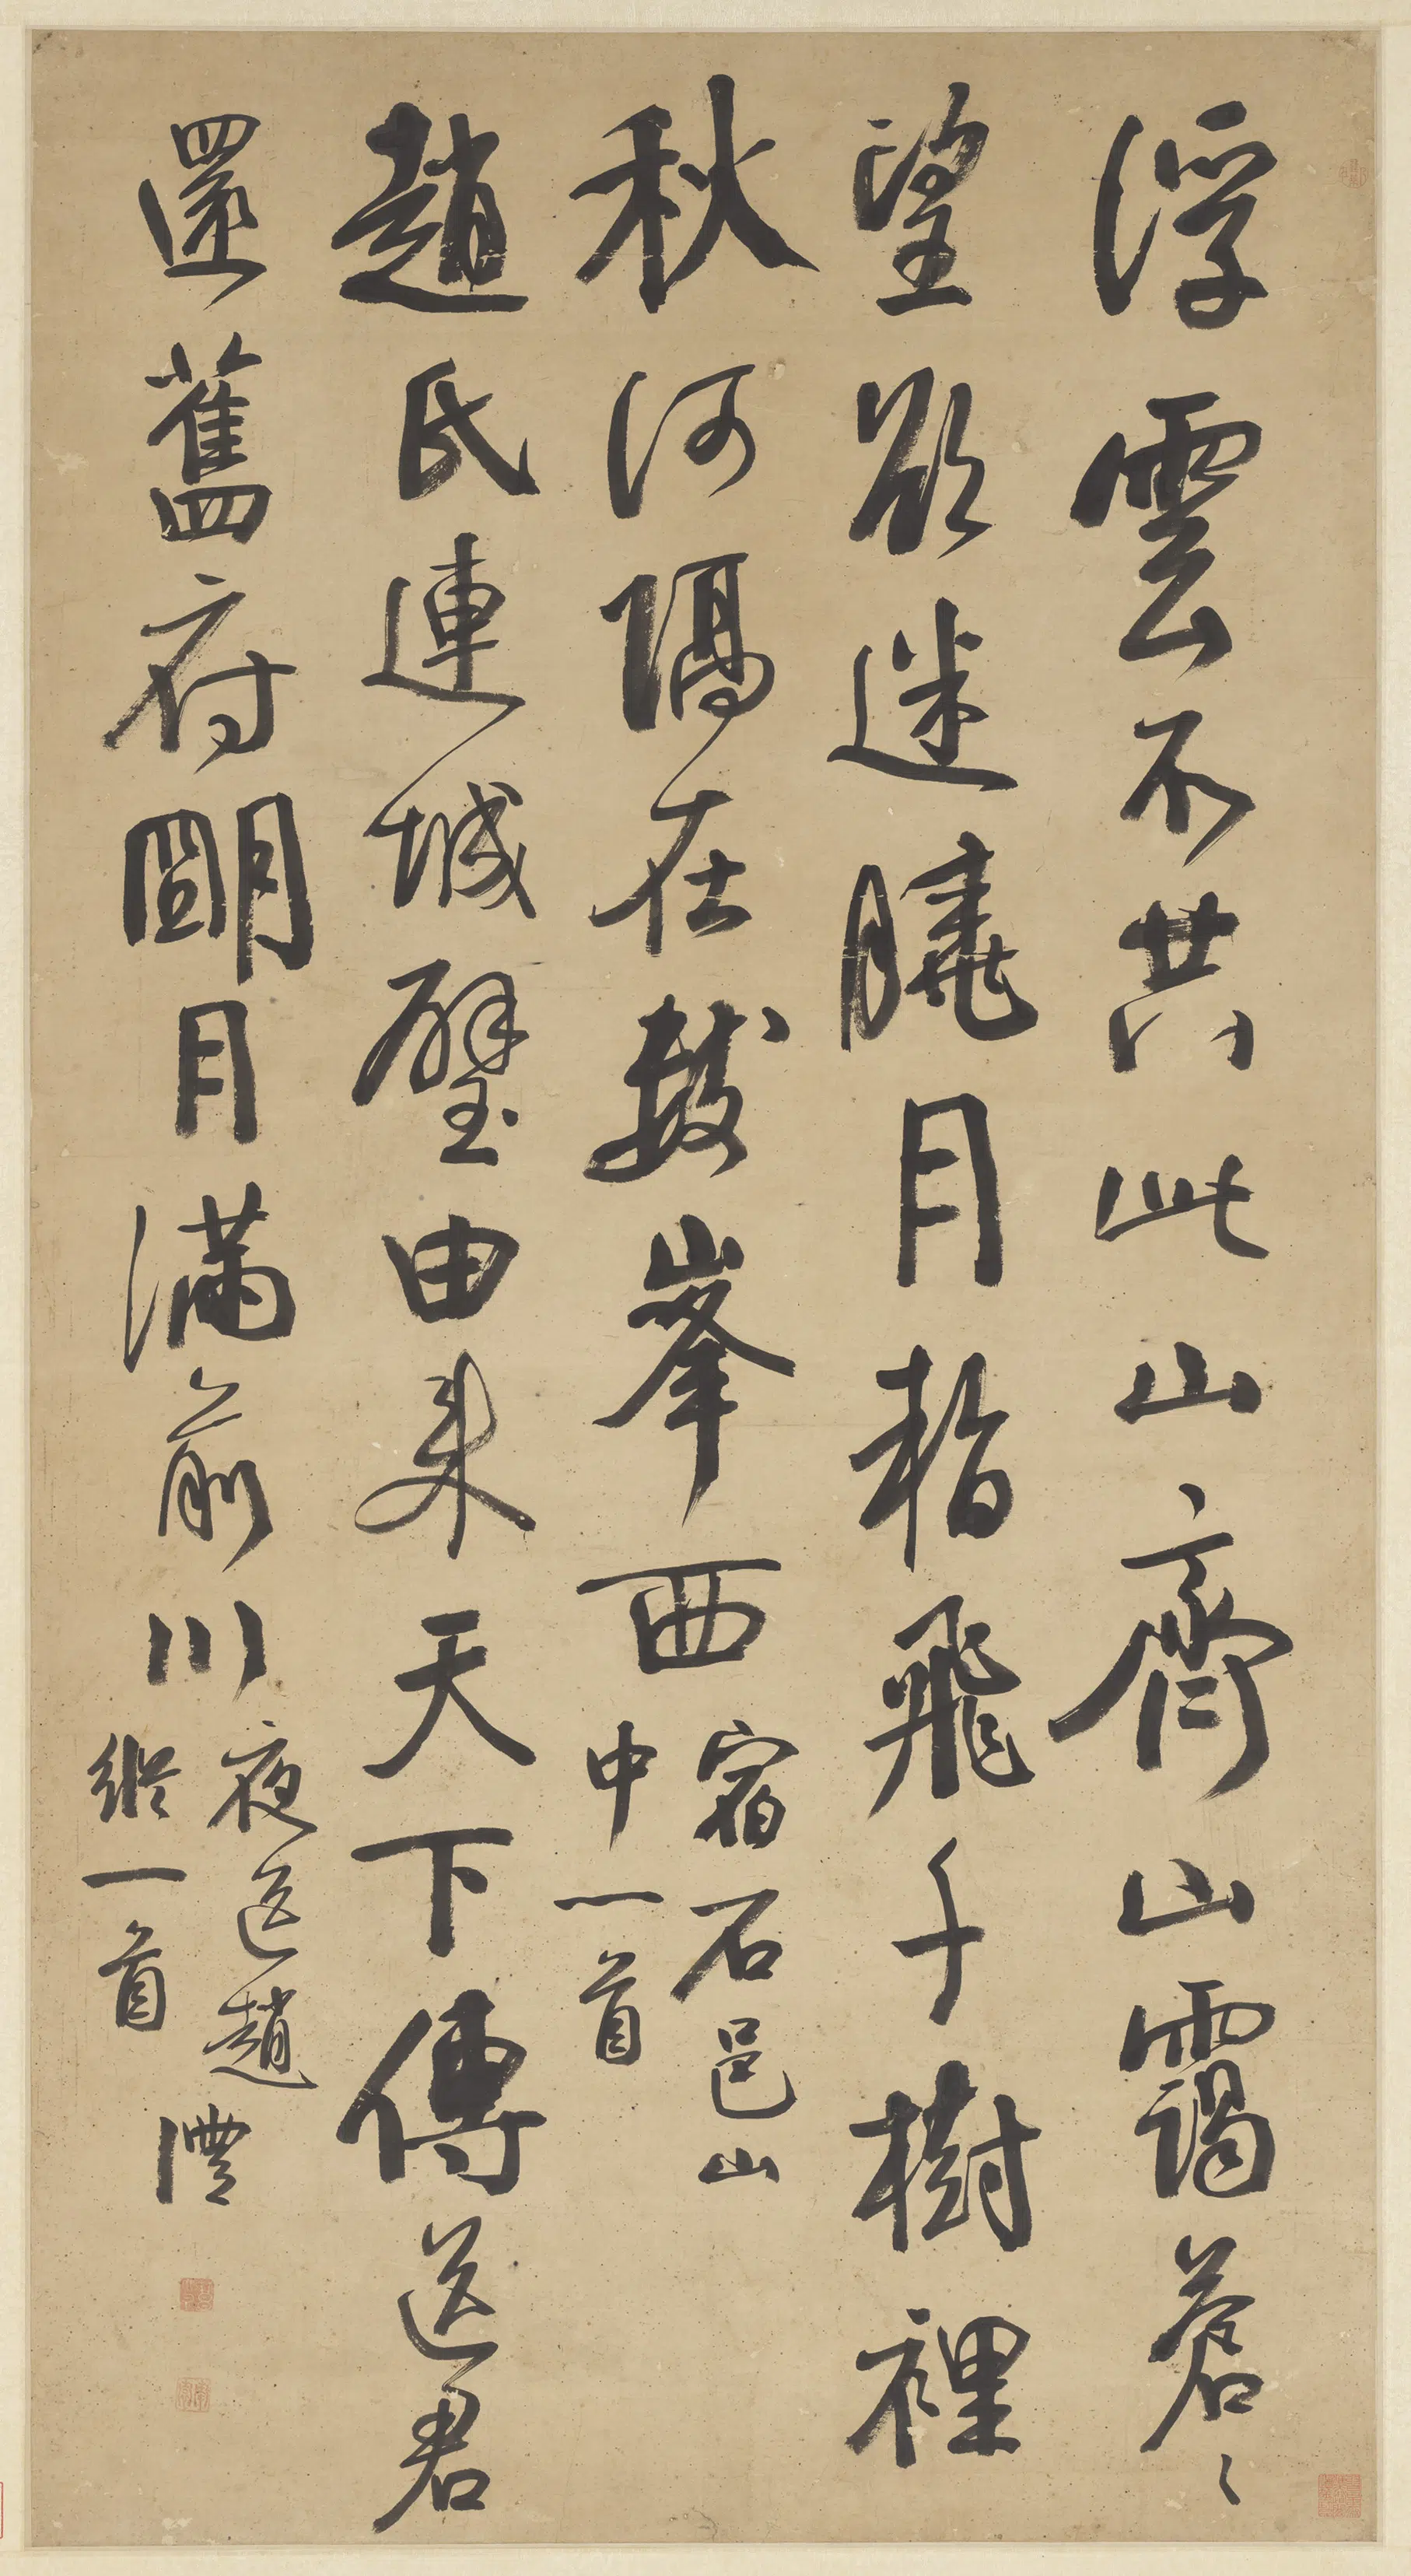 浮雲不共此山齊山靄蒼〻
望欲迷曉月暫飛千樹裡
秋河隔在數峯西
宿石邑山
中一首
趙氏連城璧由来天下傳送君
還舊府明月滿前川
夜送趙
縱一首
澧